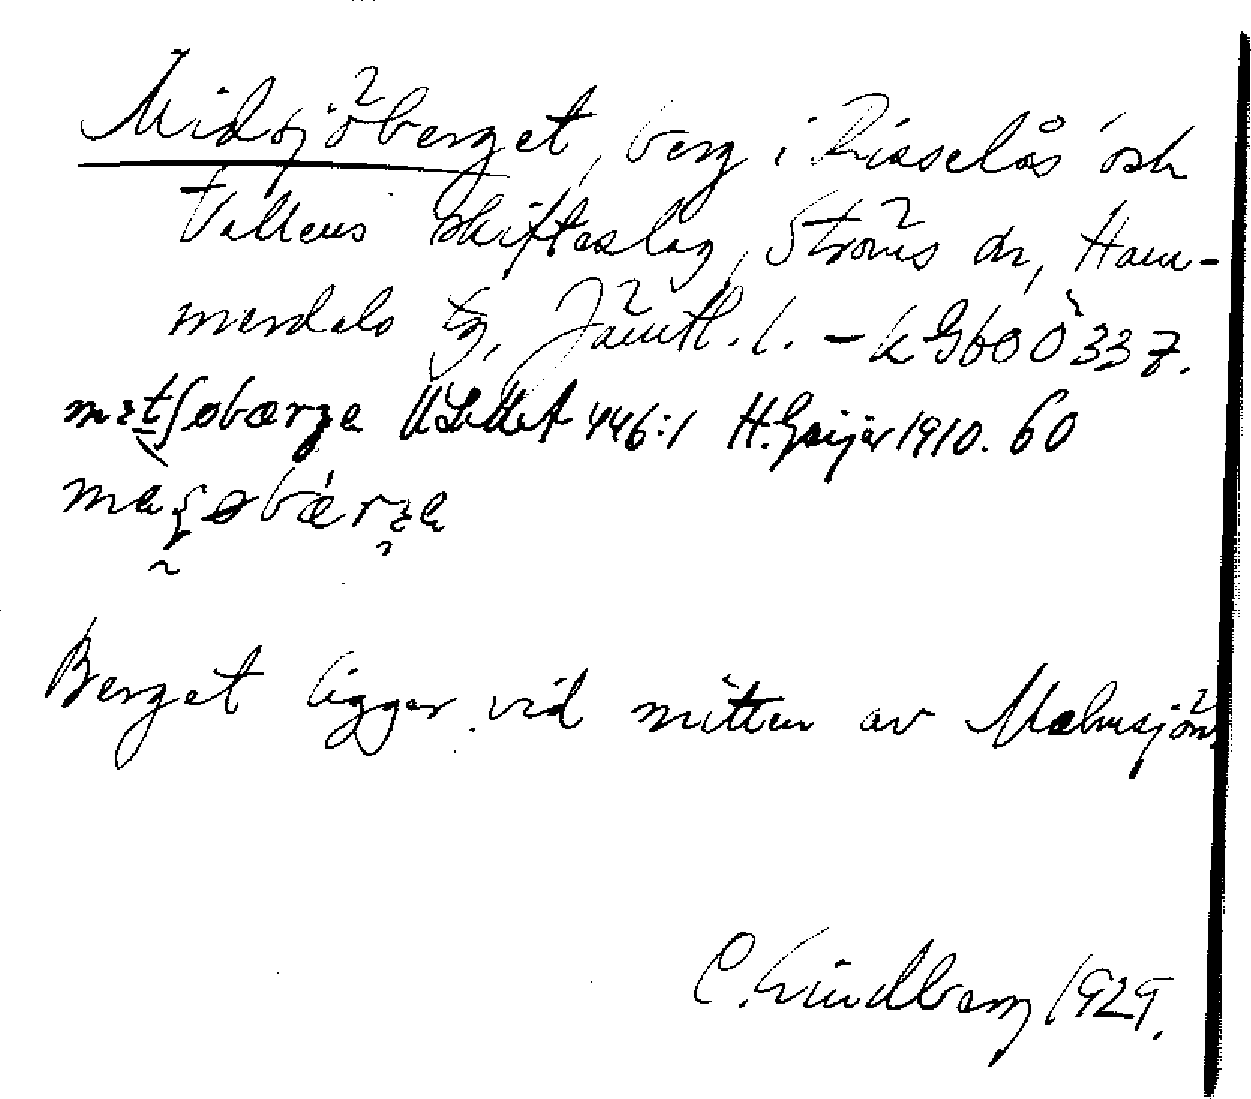 Midsjöberget, berg i Risselås och
Vallens skifteslag, Ströms sn, Ham-
merdals tg, Jämtl. l. – k Gb 60 Ö 337.
ULMA 446:1 H. Geijer 1910. 60
Berget ligger vid mitten av Malmsjön.
C. Lindberg 1929.